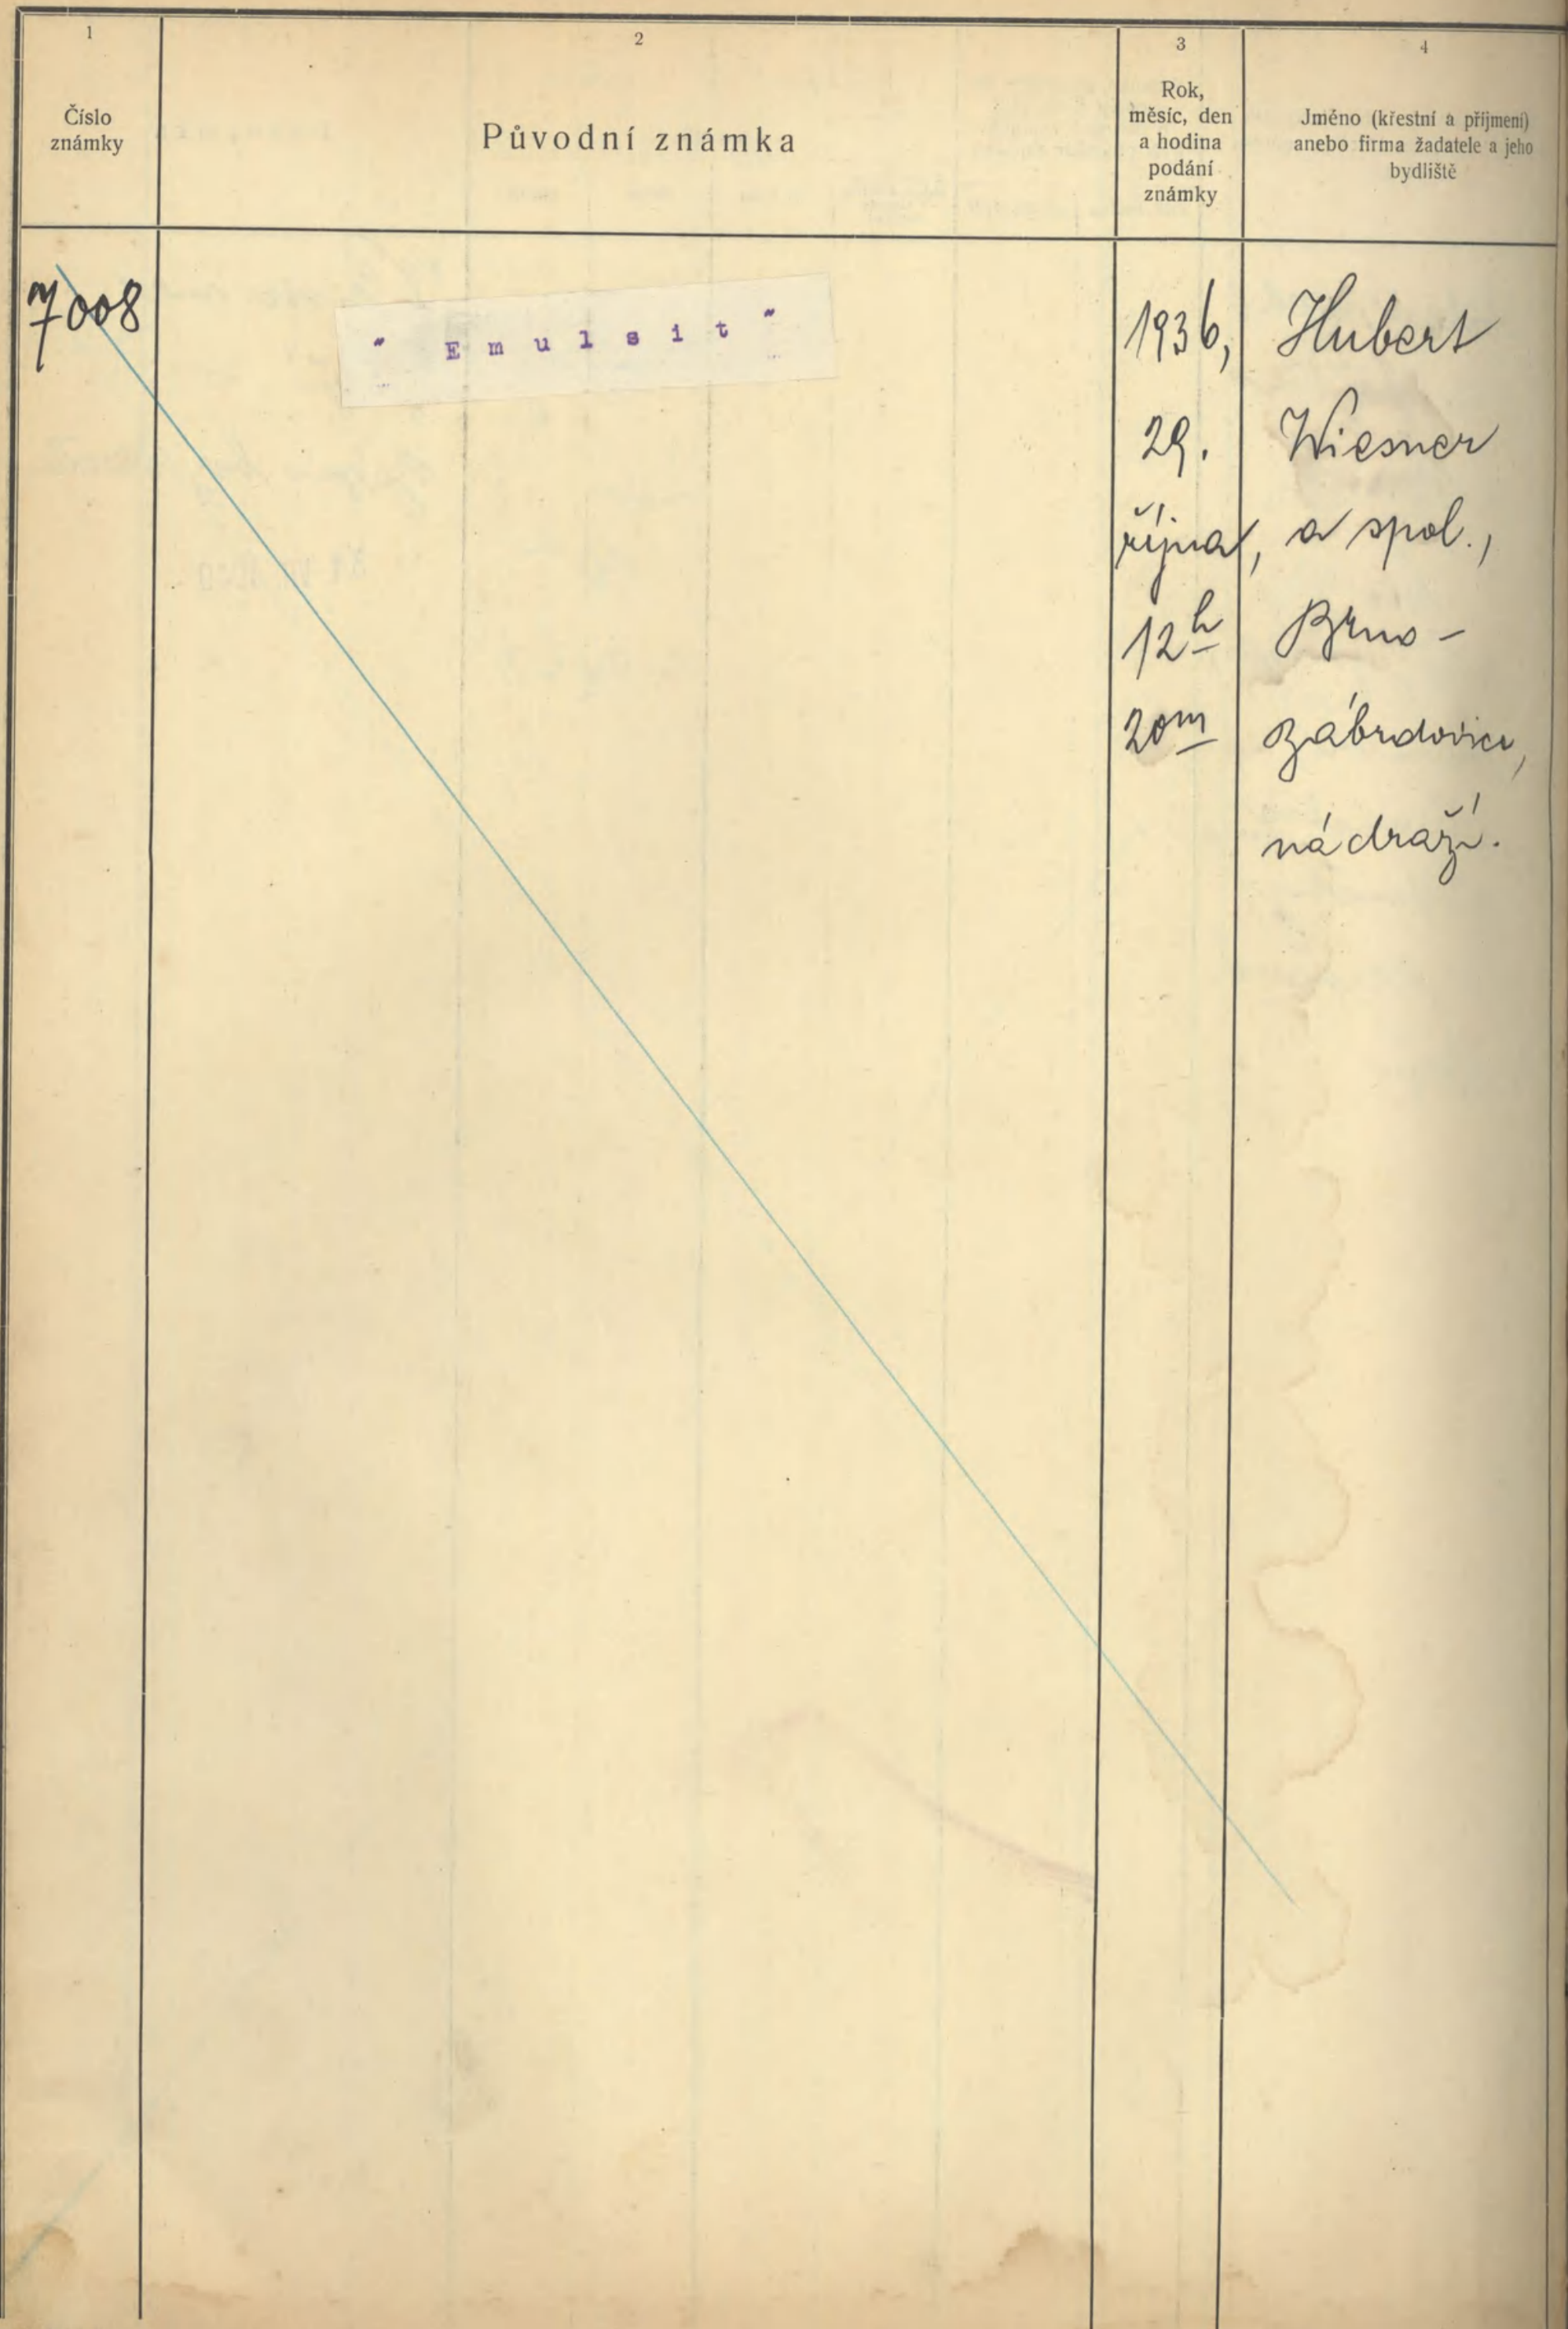 1
Číslo
známky
2
Původní známka
3
Rok,
měsíc, den
a hodina
podání
známky
4
Jméno (křestní a příjmení)
anebo firma žadatele a jeho
bydliště
7008
" Emulsit "
1936,
29.
října,
12h
20m
Hubert
Wiesner
a spol.,
Brno -
Zábrdovice,
nádraží.